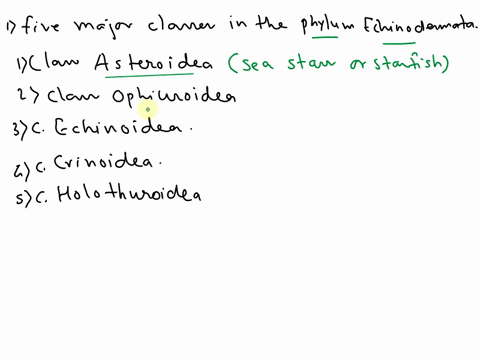 1) five major classes in the phylum Echinodermata.
1) Class Asteroidea (sea stars or starfish)
2) Class Ophiuroidea
3) C. Echinoidea.
4) C. Crinoidea.
5) C. Holothuroidea